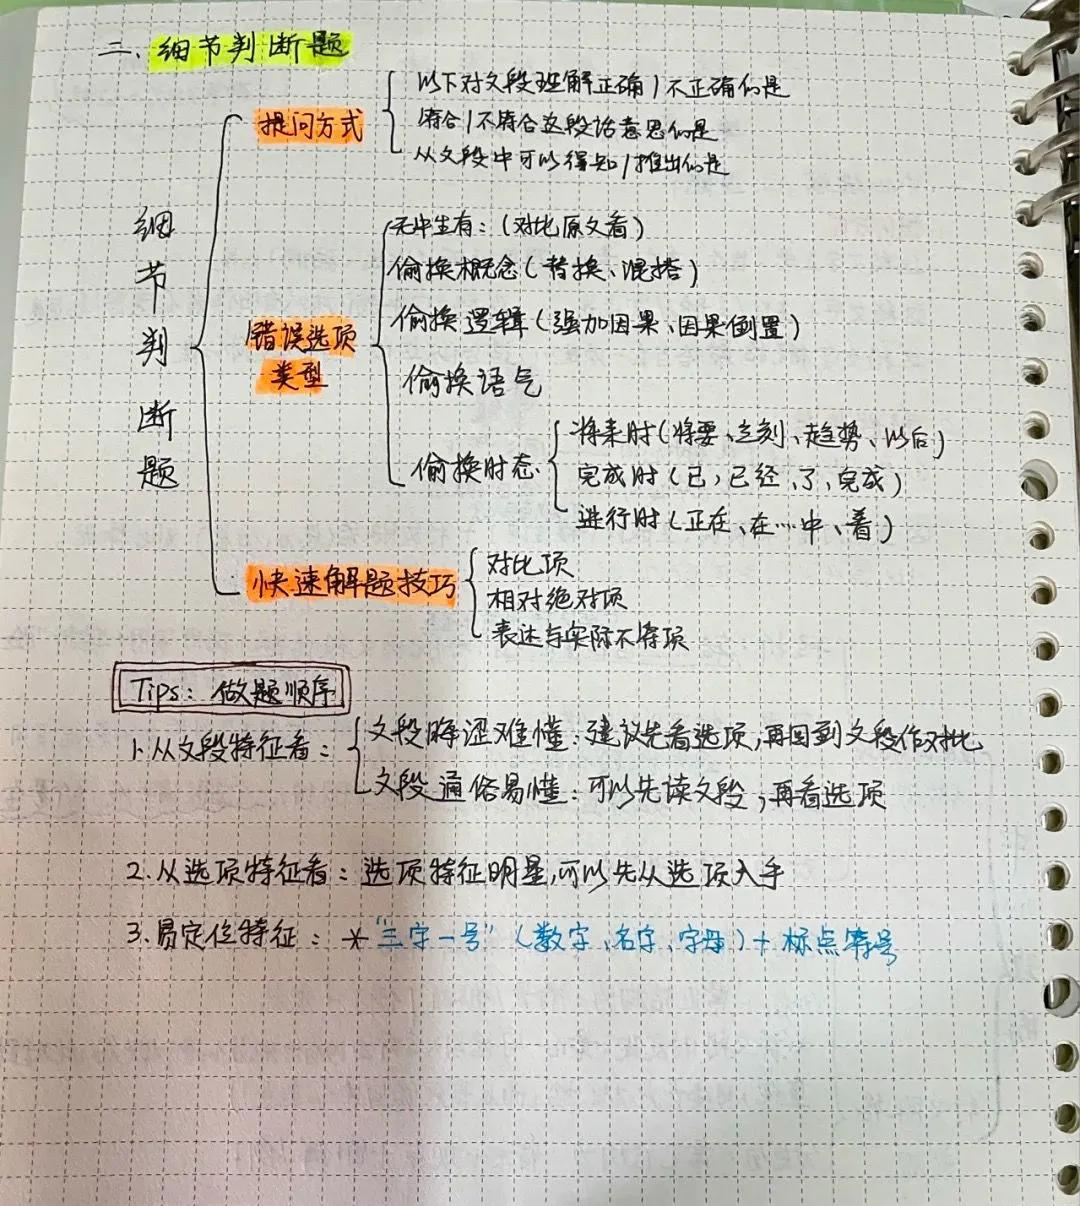 二、细节判断题
细节判断题
提问方式
以下对文段理解正确/不正确的是
符合/不符合这段话意思的是
从文段中可以得知/推出的是
错误选项
类型
无中生有：(对比原文看)
偷换概念(替换、混搭)
偷换逻辑(强加因果、因果倒置)
偷换语气
偷换时态
将来时(将要、立刻、趋势、以后)
完成时(已,已经、了、完成)
进行时(正在、在…中、着)
快速解题技巧
对比项
相对绝对项
表达与实际不符项
Tips：做题顺序
1.从文段特征看：
文段晦涩难懂：建议先看选项,再回到文段作对比
文段通俗易懂：可以先读文段,再看选项
2.从选项特征看：选项特征明显,可以先从选项入手
3.易定位特征：*“三字一号”(数字、名字、字母)+标点符号